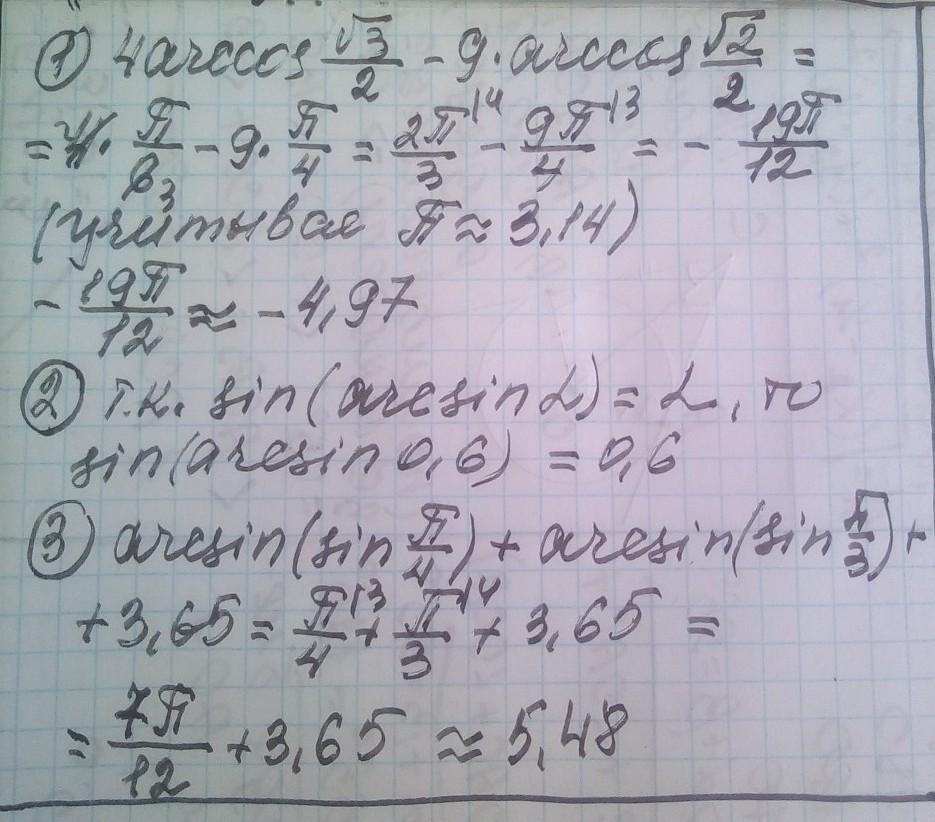 ① 4arccos √3/2 - 9·arccos √2/2 =
= 4· π/6 3 - 9· π/4 = 2π/3 \4 - 9π/4 \3 = - 19π/12
(учитывая π ≈ 3,14)
- 19π/12 ≈ -4,97
② т.к. sin(arcsin α) = α, то
sin(arcsin 0,6) = 0,6
③ arcsin(sin π/4) + arcsin(sin π/3) +
+ 3,65 = π/4 \3 + π/3 \4 + 3,65 =
= 7π/12 + 3,65 ≈ 5,48